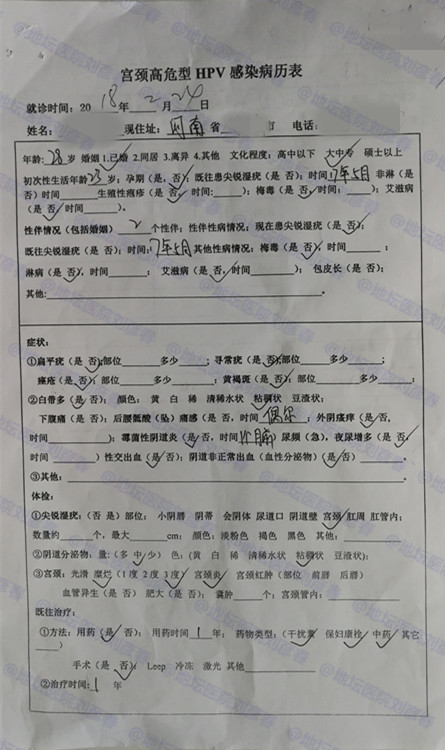 宫颈高危型 HPV 感染病历表
就诊时间：2018年2月24日
姓名：＿＿现住址：河南省＿＿ 电话：
年龄：28岁 婚姻 1.已婚 2.同居 3.离异 4.其他 文化程度：高中以下 大中专 硕士以上
初次性生活年龄23岁；孕期（是，否）；既往患尖锐湿疣（是 否）；时间17年5月 非淋（是
否）时间＿＿生殖性疱疹（是 否，时间：＿＿）；梅毒（是 否，时间：＿＿）；艾滋病
（是 否，时间＿＿）。
性伴情况（包括婚姻）2个性伴；性伴性病情况：现在患尖锐湿疣（是 否）；
既往尖锐湿疣（是 否）；时间：17年5月其他性病情况：梅毒（是 否），时间＿＿；
淋病（是 否），时间＿＿； 艾滋病（是 否，时间＿＿）； 包皮长（是 否）；
其他:＿＿。
症状：
①扁平疣（是 否）；部位＿＿多少＿＿；寻常疣（是 否）；部位＿＿多少＿＿；
痤疮（是 否）；部位＿＿多少＿＿；黄褐斑（是 否）；部位＿＿多少＿＿；
②白带多（是 否）； 颜色： 黄 白 稀 清稀水状 粘稠状 豆渣状；
下腹痛（是 否）；后腰骶酸（坠）痛感（是 否，时间 偶尔；外阴瘙痒（是 否，
时间＿＿）；霉菌性阴道炎（是 否，时间＿＿尿频（急），夜尿增多（是 否，
时间＿＿）性交出血（是 否）；阴道非正常出血（血性分泌物）（是 否）＿＿。
③其他：＿＿
体检：
①尖锐湿疣：（否 是）部位： 小阴唇 阴蒂 会阴体 尿道口 阴道壁 宫颈 肛周 肛管内；
数量约＿＿个，最大＿＿cm； 颜色：淡粉色 褐色 黑色 其他：＿＿
②阴道分泌物：量：（多 中 少） 色：（黄 白 稀 清稀水状 粘稠状 豆渣状）；
③宫颈：光滑 糜烂（1度 2度 3度） 宫颈炎 宫颈红肿（部位 前唇 后唇）
血管异生（是 否） 肥大（是 否）； 囊肿＿＿个；宫颈管内：＿＿
既往治疗：
①方法：用药（是 否）； 用药时间1年； 药物类型：（干扰素 保妇康栓 中药 其它
＿＿）
手术（是 否）； Leep 冷冻 激光 其他＿＿
②治疗时间：1 年
@地坛医院刘医春